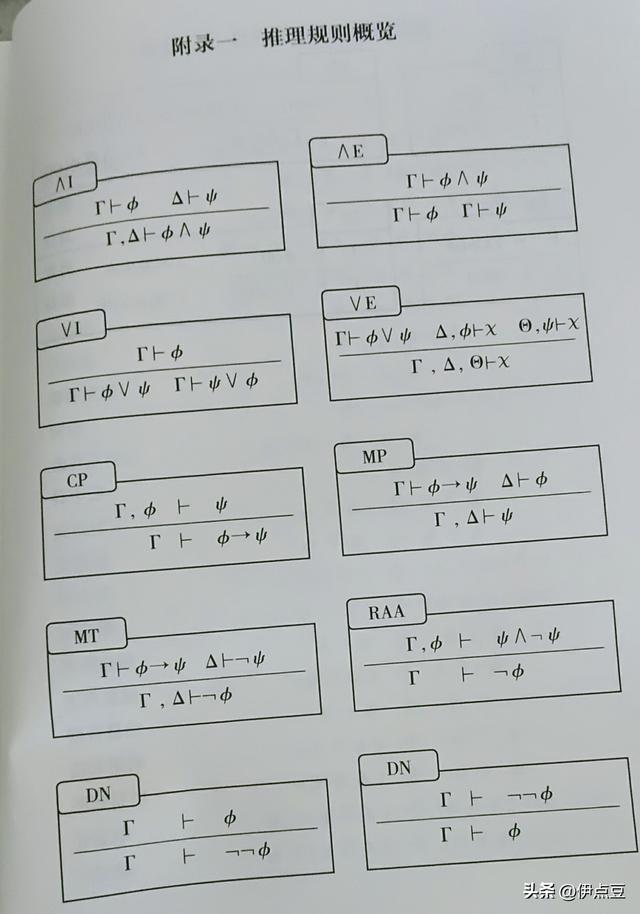 附录一 推理规则概览
∧I
Γ⊢ϕ Δ⊢ψ
Γ,Δ⊢ϕ∧ψ
∧E
Γ⊢ϕ∧ψ
Γ⊢ϕ Γ⊢ψ
∨I
Γ⊢ϕ
Γ⊢ϕ∨ψ Γ⊢ψ∨ϕ
∨E
Γ⊢ϕ∨ψ Δ,ϕ⊢χ Θ,ψ⊢χ
Γ,Δ,Θ⊢χ
CP
Γ,ϕ ⊢ ψ
Γ ⊢ ϕ→ψ
MP
Γ⊢ϕ→ψ Δ⊢ϕ
Γ,Δ⊢ψ
MT
Γ⊢ϕ→ψ Δ⊢¬ψ
Γ,Δ⊢¬ϕ
RAA
Γ,ϕ ⊢ ψ∧¬ψ
Γ ⊢ ¬ϕ
DN
Γ ⊢ ϕ
Γ ⊢ ¬¬ϕ
DN
Γ ⊢ ¬¬ϕ
Γ ⊢ ϕ
头条 @伊点豆